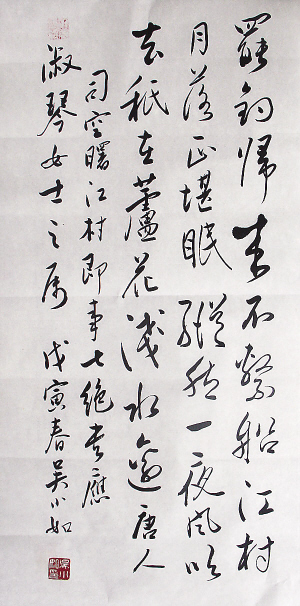 罷釣歸来不繫船江村
月落正堪眠縱然一夜風吹
去秖在蘆花淺水邊唐人
司空曙江村即事七絕書應
淑琴女士之属 戊寅春吴小如